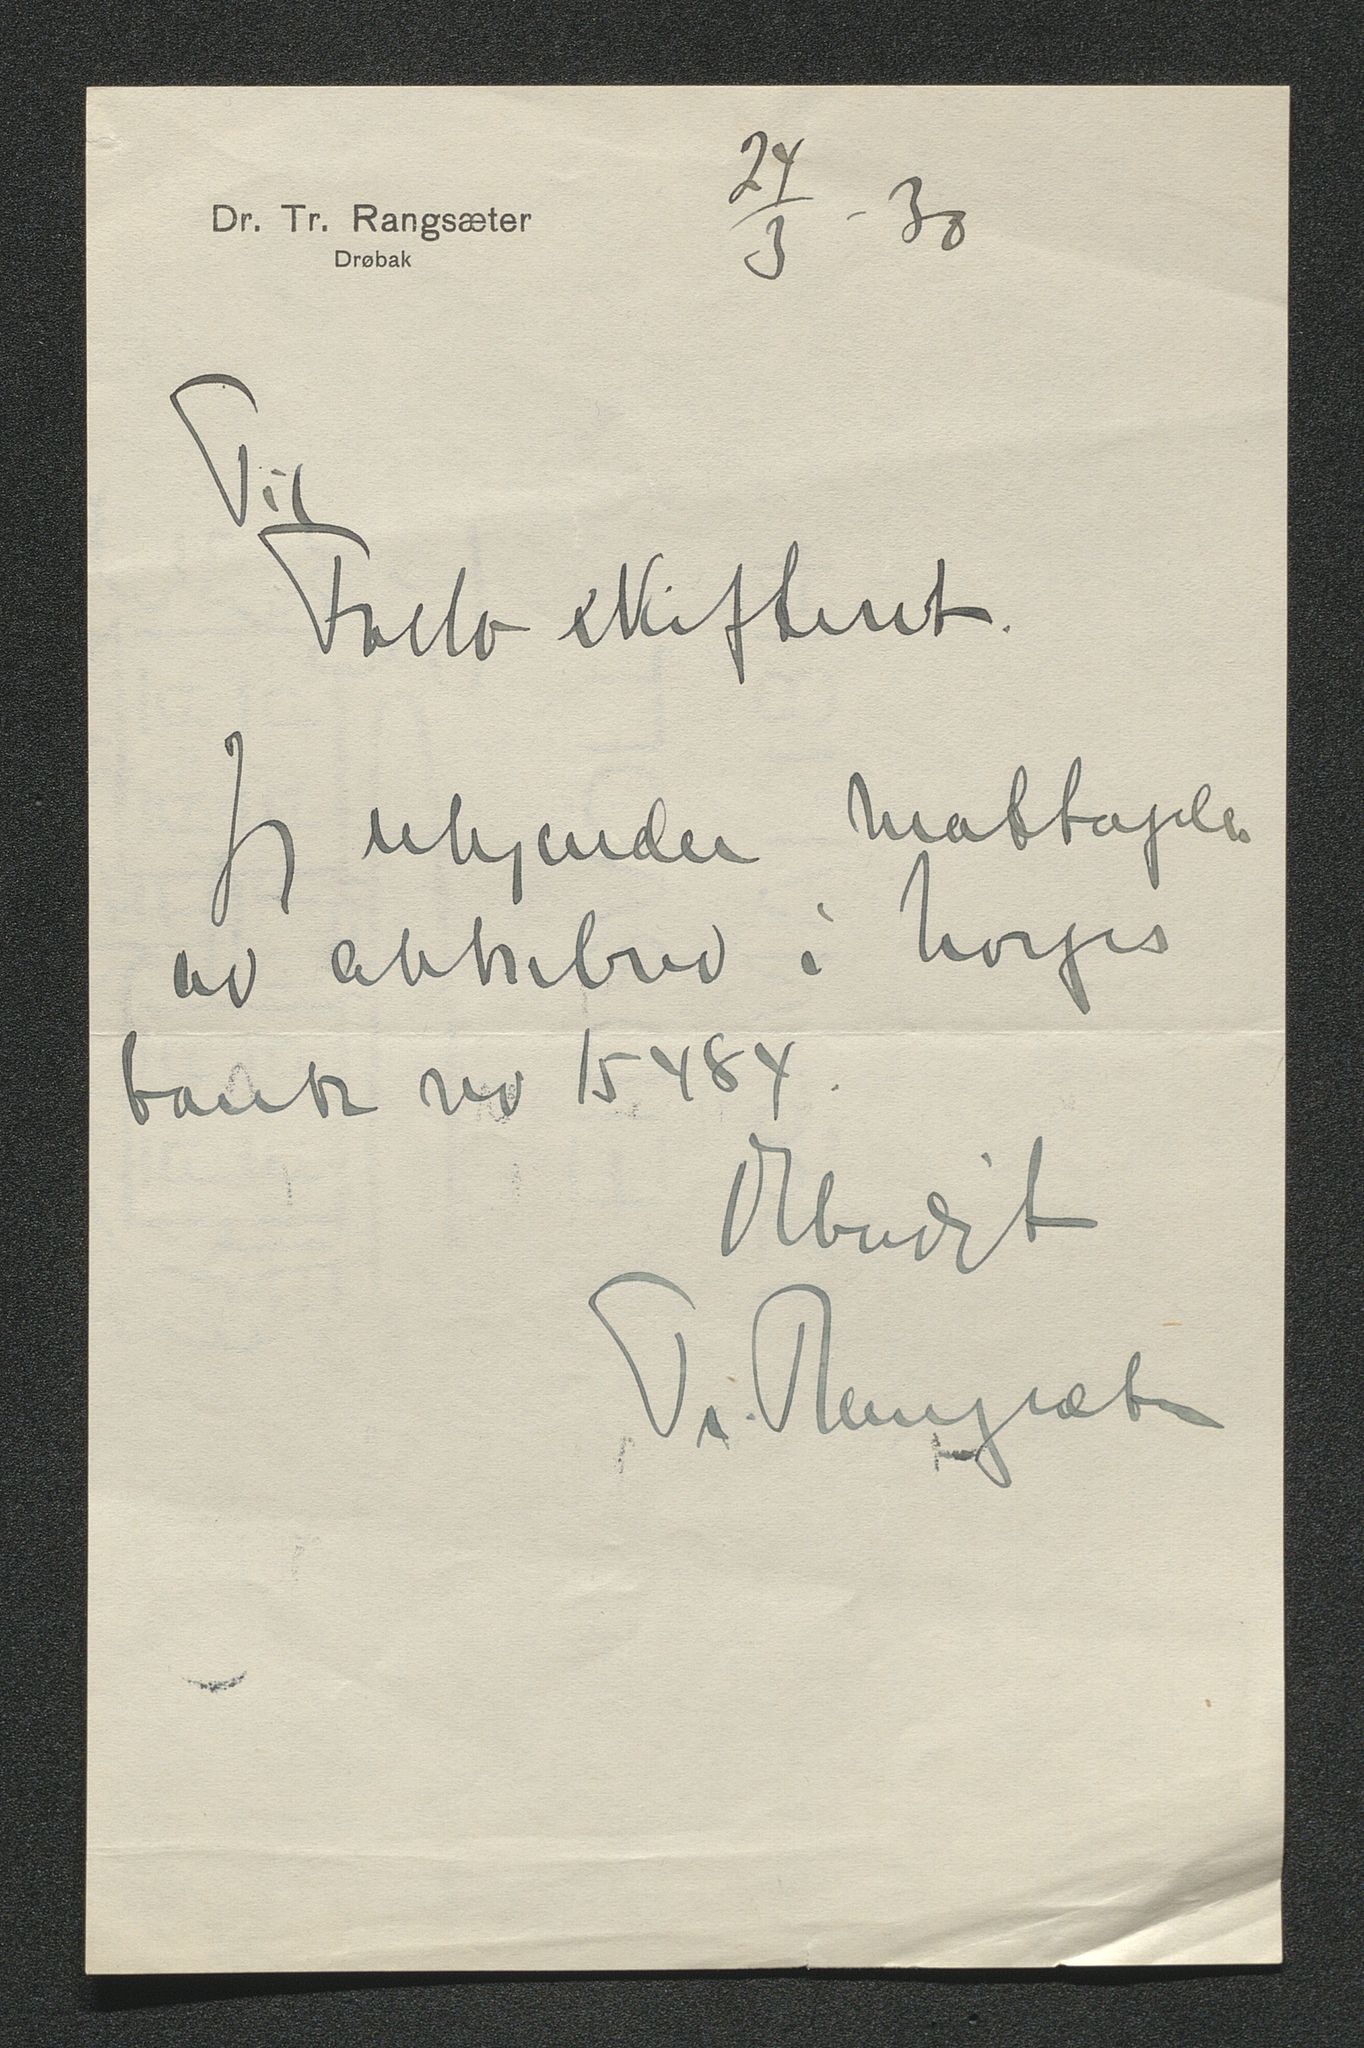 Dr. Tr. Rangsæter
Drøbak
24/3 - 30
Til
Follo skifteret.
Jeg erkjender mottagelse
av aktiebrev i Norges
bank no 15484.
Ærbødigst
Tr. Rangsæter